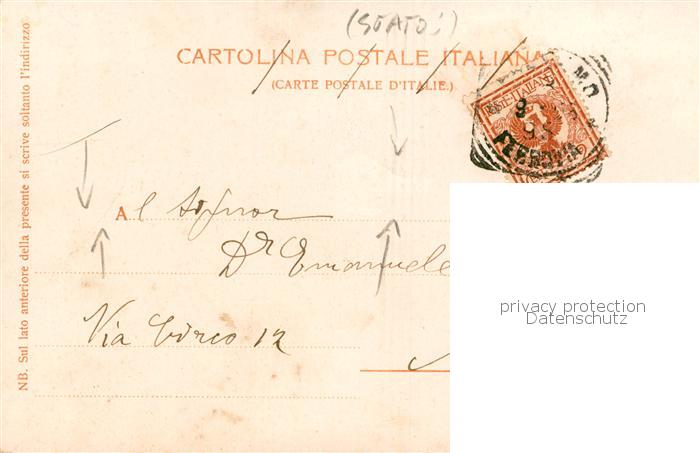 (STATO!)
CARTOLINA POSTALE ITALIANA
(CARTE POSTALE D'ITALIE.)
POSTE ITALIANE
FERROVIA
NB. Sul lato anteriore della presente si scrive soltanto l'indirizzo
Al Signor
Dr Emanuele
Via Circo 12
privacy protection
Datenschutz